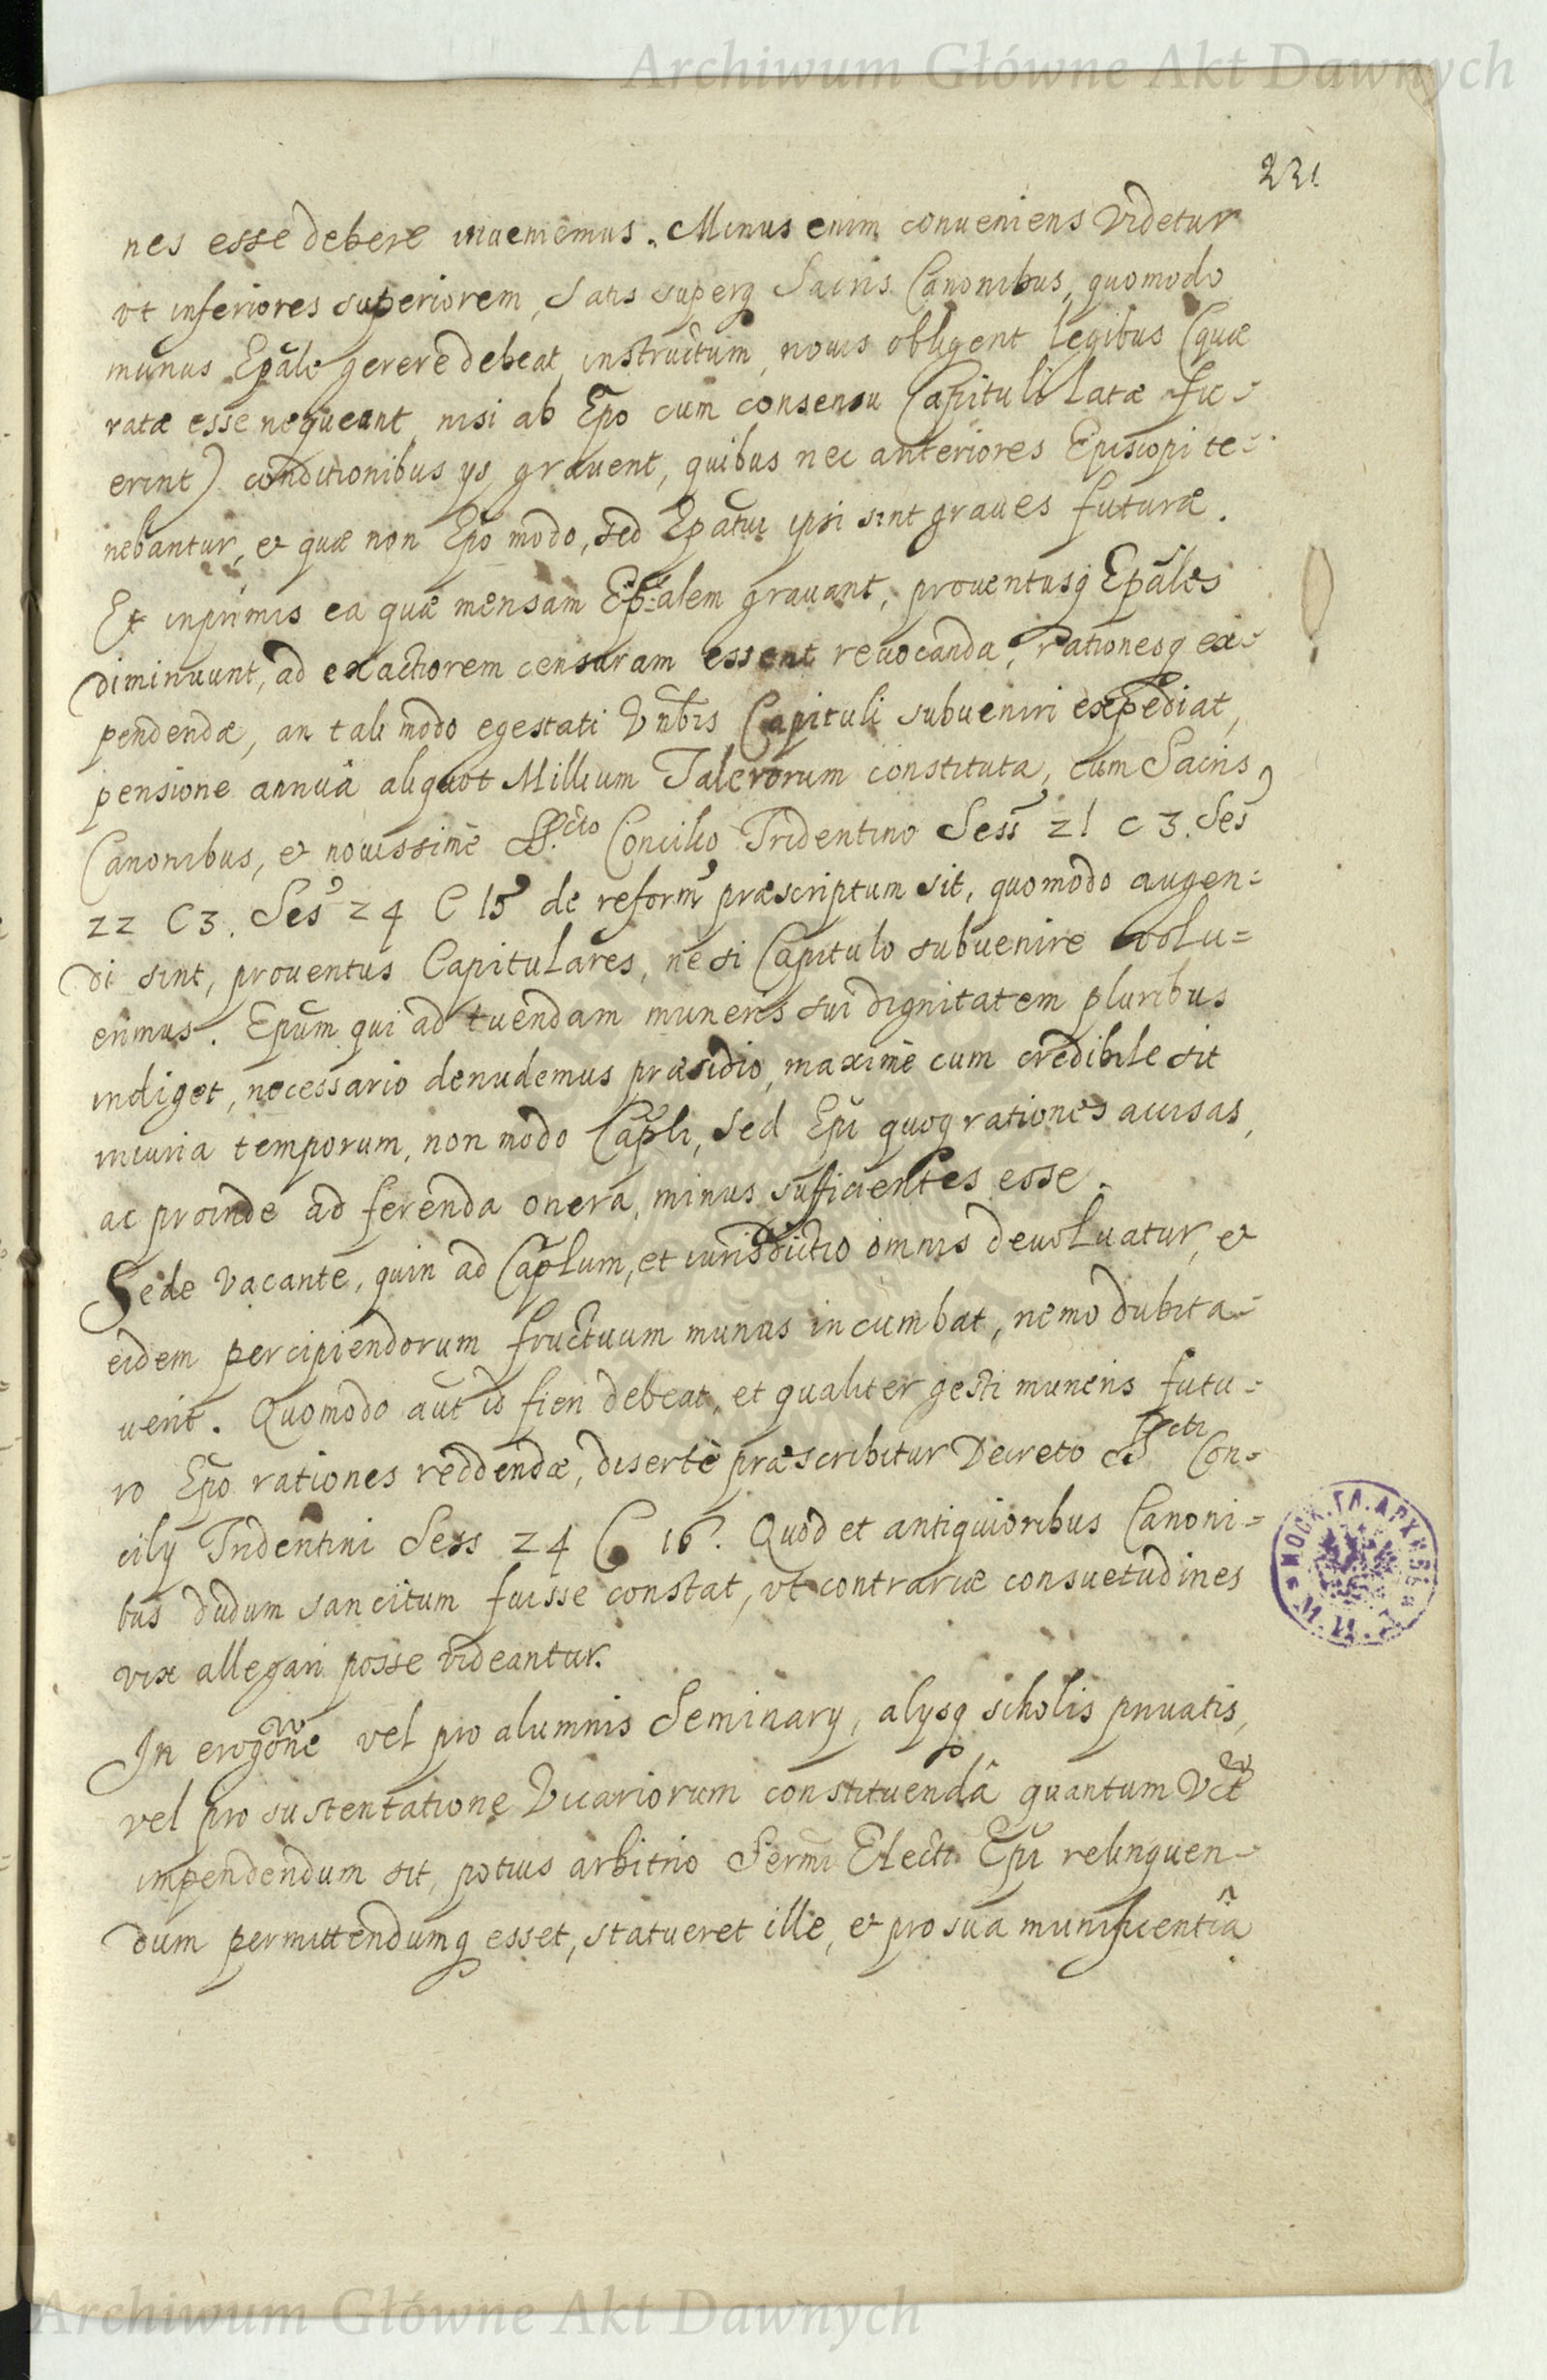 Archiwum Główne Akt Dawnych
221
nes esse debere inueniemus. Minus enim conueniens videtur
vt inferiores superiorem, satis superq Sacris Canonibus, quomodo
munus Epãle gerere debeat, instructum, nouis obligent legibus (quæ
ratæ esse nequeant nisi ab Epõ cum consensu Capituli latæ fu-
erint) conditionibus ys grauent, quibus nec anteriores Episcopi te-
nebantur, et quæ non Epõ modo, sed Epãtui ipsi sint graues futuræ.
Et inprimis ea quæ mensam Ep:alem grauant, prouentusq Epãles
diminuunt, ad exactiorem censuram essent reuocanda, rationesq ex-
pendendæ, an tali modo egestati Vrãbis Capituli subueniri expediat,
pensione annuâ aliquot Millium Talerorum constituta, cum Sacris
Canonibus, et nouissimè SS.cto Concilio Tridentino Sess 21 c 3. Ses
22 C 3. Ses 24 C 15 de reform præscriptum sit, quomodo augen=
di sint, prouentus Capitulares, ne si Capitulo subuenire volu=
erimus. Epũm qui ad tuendam muneris sui dignitatem pluribus
indiget, necessario denudemus præsidio, maximè cum credibile sit
iniuria temporum, non modo Capli, sed Epĩ quoq rationes accisas,
ac proinde ad ferenda onera, minus sufficientes esse.
Sede vacante, quin ad Caplum, et iurisdictio omnis deuoluatur, et
eidem percipiendorum fructuum munus incumbat, nemo dubita-
uerit. Quomodo aũt id fieri debeat, et qualiter gesti muneris futu-
ro Epõ rationes reddendæ, disertè præscribitur Decreto SScti Con-
cily Tridentini Sess 24 C 16. Quod et antiquioribus Canoni=
bus dudum sancitum fuisse constat, vt contrariæ consuetudines
vix allegari posse videantur.
In erogõne vel pro alumnis Seminary, alysq scholis priuatis,
vel pro sustentatione Vicariorum constituendâ quantum
impendendum sit, potius arbitrio Sermi Electi Epĩ relinquen-
dum permittendumq esset, statueret ille, et pro sua munificentiâ
Archiwum Główne Akt Dawnych